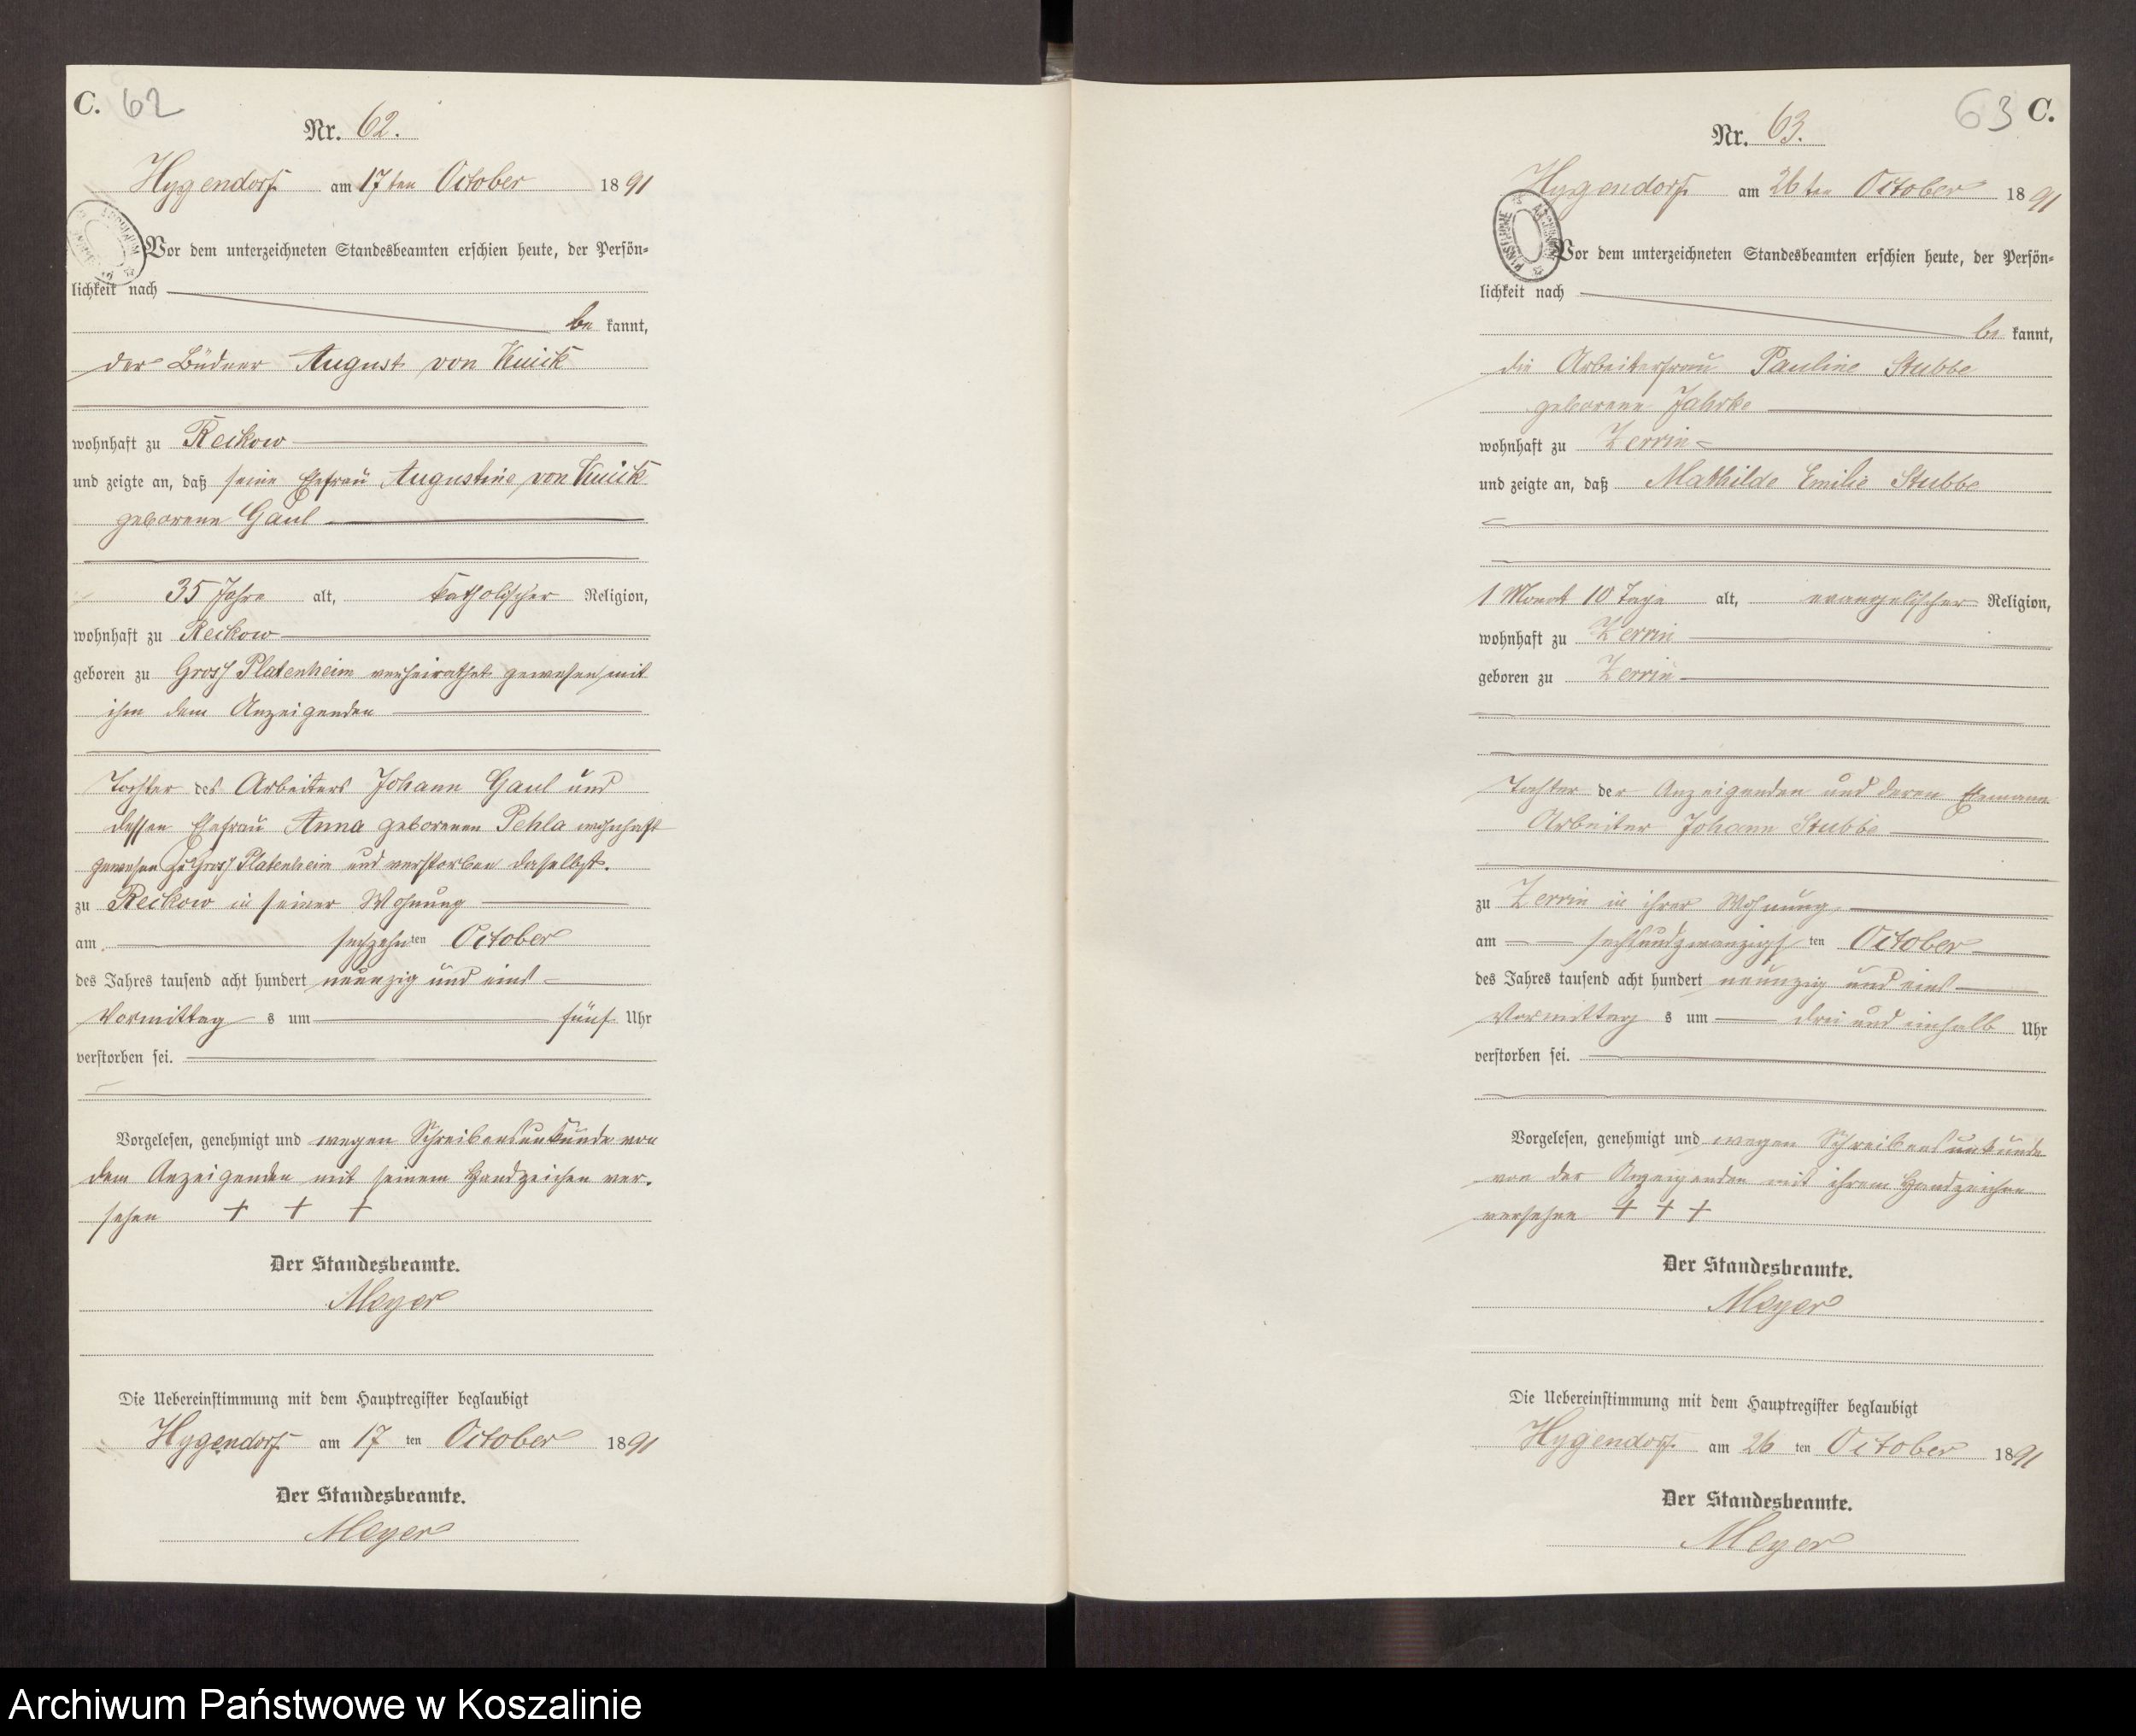 C. 62
Nr. 62.
Hygendorf am 17ten October 1891
Vor dem unterzeichneten Standesbeamten erschien heute, der Persön-
lichkeit nach
be kannt,
der Büdner August von Kuick
wohnhaft zu Reckow
und zeigte an, daß seine Ehefrau Augustine von Kuick
geborene Gaul
35 Jahre alt, katholischer Religion,
wohnhaft zu Reckow
geboren zu Gross Platenheim verheirathet gewesen mit
ihm dem Anzeigenden
Tochter des Arbeiters Johann Gaul und
dessen Ehefrau Anna geborenen Pehla wohnhaft
gewesen zu Gross Platenheim und verstorben daselbst.
zu Reckow in seiner Wohnung
am sechzehnten October
des Jahres tausend acht hundert neunzig und eins
Vormittag s um fünf Uhr
verstorben sei.
Vorgelesen, genehmigt und wegen Schreibensunkunde von
dem Anzeigenden mit seinem Handzeichen ver-
sehen + + +
Der Standesbeamte.
Meyer
Die Uebereinstimmung mit dem Hauptregister beglaubigt
Hygendorf am 17 ten October 1891
Der Standesbeamte.
Meyer
63 C.
Nr. 63.
Hygendorf am 26ten October 1891
ARCHIWUM PAŃSTWOWE
Vor dem unterzeichneten Standesbeamten erschien heute, der Persön-
lichkeit nach
be kannt,
die Arbeiterfrau Pauline Stubbe
geborene Jahrke
wohnhaft zu Zerrin
und zeigte an, daß Mathilde Emilie Stubbe
1 Monat 10 Tage alt, evangelischer Religion,
wohnhaft zu Zerrin
geboren zu Zerrin
Tochter der Anzeigenden und deren Ehemann
Arbeiter Johann Stubbe
zu Zerrin in ihrer Wohnung
am sechsundzwanzigsten October
des Jahres tausend acht hundert neunzig und eins
Vormittag s um drei und einhalb Uhr
verstorben sei.
Vorgelesen, genehmigt und wegen Schreibensunkunde
von der Anzeigenden mit ihrem Handzeichen
versehen + + +
Der Standesbeamte.
Meyer
Die Uebereinstimmung mit dem Hauptregister beglaubigt
Hygendorf am 26 ten October 1891
Der Standesbeamte.
Meyer
Archiwum Państwowe w Koszalinie